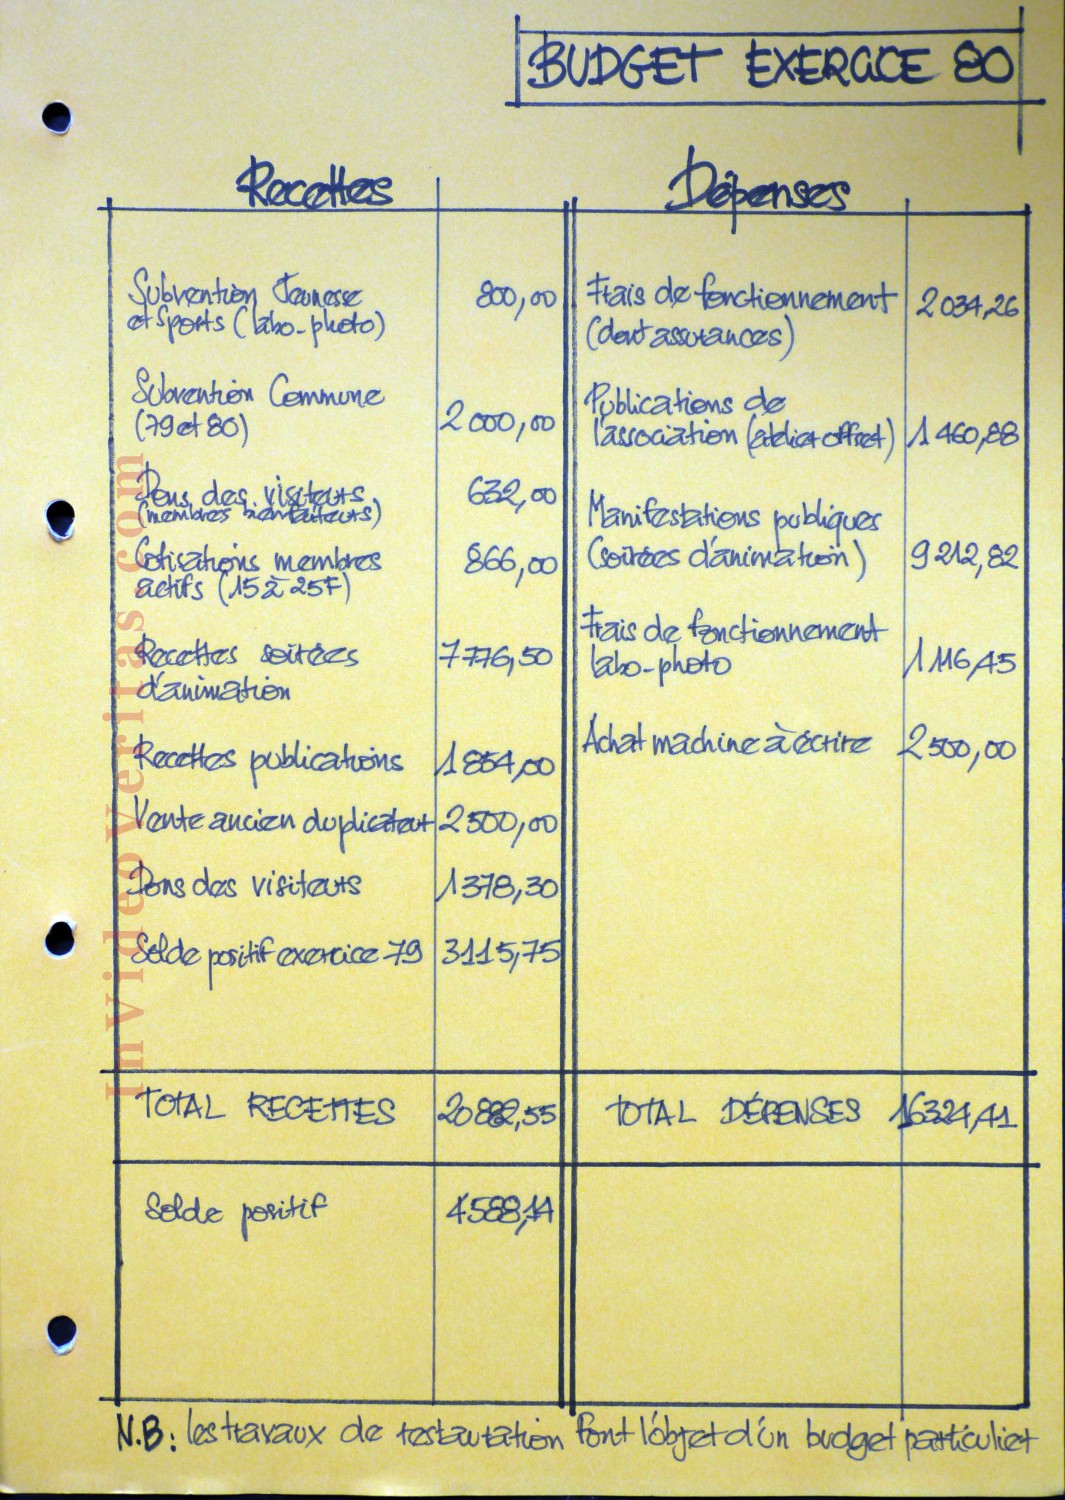 BUDGET EXERCICE 80
Recettes
Subvention Jeunesse 800,00
et Sports (labo-photo)
Subvention Commune
(79 et 80) 2 000,00
Dons des visiteurs 632,00
(membres bienfaiteurs)
Cotisations membres 866,00
actifs (15 à 25F)
Recettes soirées 7 776,50
d'animation
Recettes publications 1 854,00
Vente ancien duplicateur 2 500,00
Dons des visiteurs 1 378,30
Solde positif exercice 79 3115,75
TOTAL RECETTES
Solde positif 4588,14
Dépenses
Frais de fonctionnement 2 034,26
(dont assurances)
Publications de
l'association (atelier offset) 1 460,88
Manifestations publiques
(soirées d'animation) 9 212,82
Frais de fonctionnement
labo-photo 1 116,45
Achat machine à écrire 2 500,00
TOTAL DÉPENSES 16324,41
N.B: les travaux de restauration font l'objet d'un budget particulier
InVideoVeritas.com